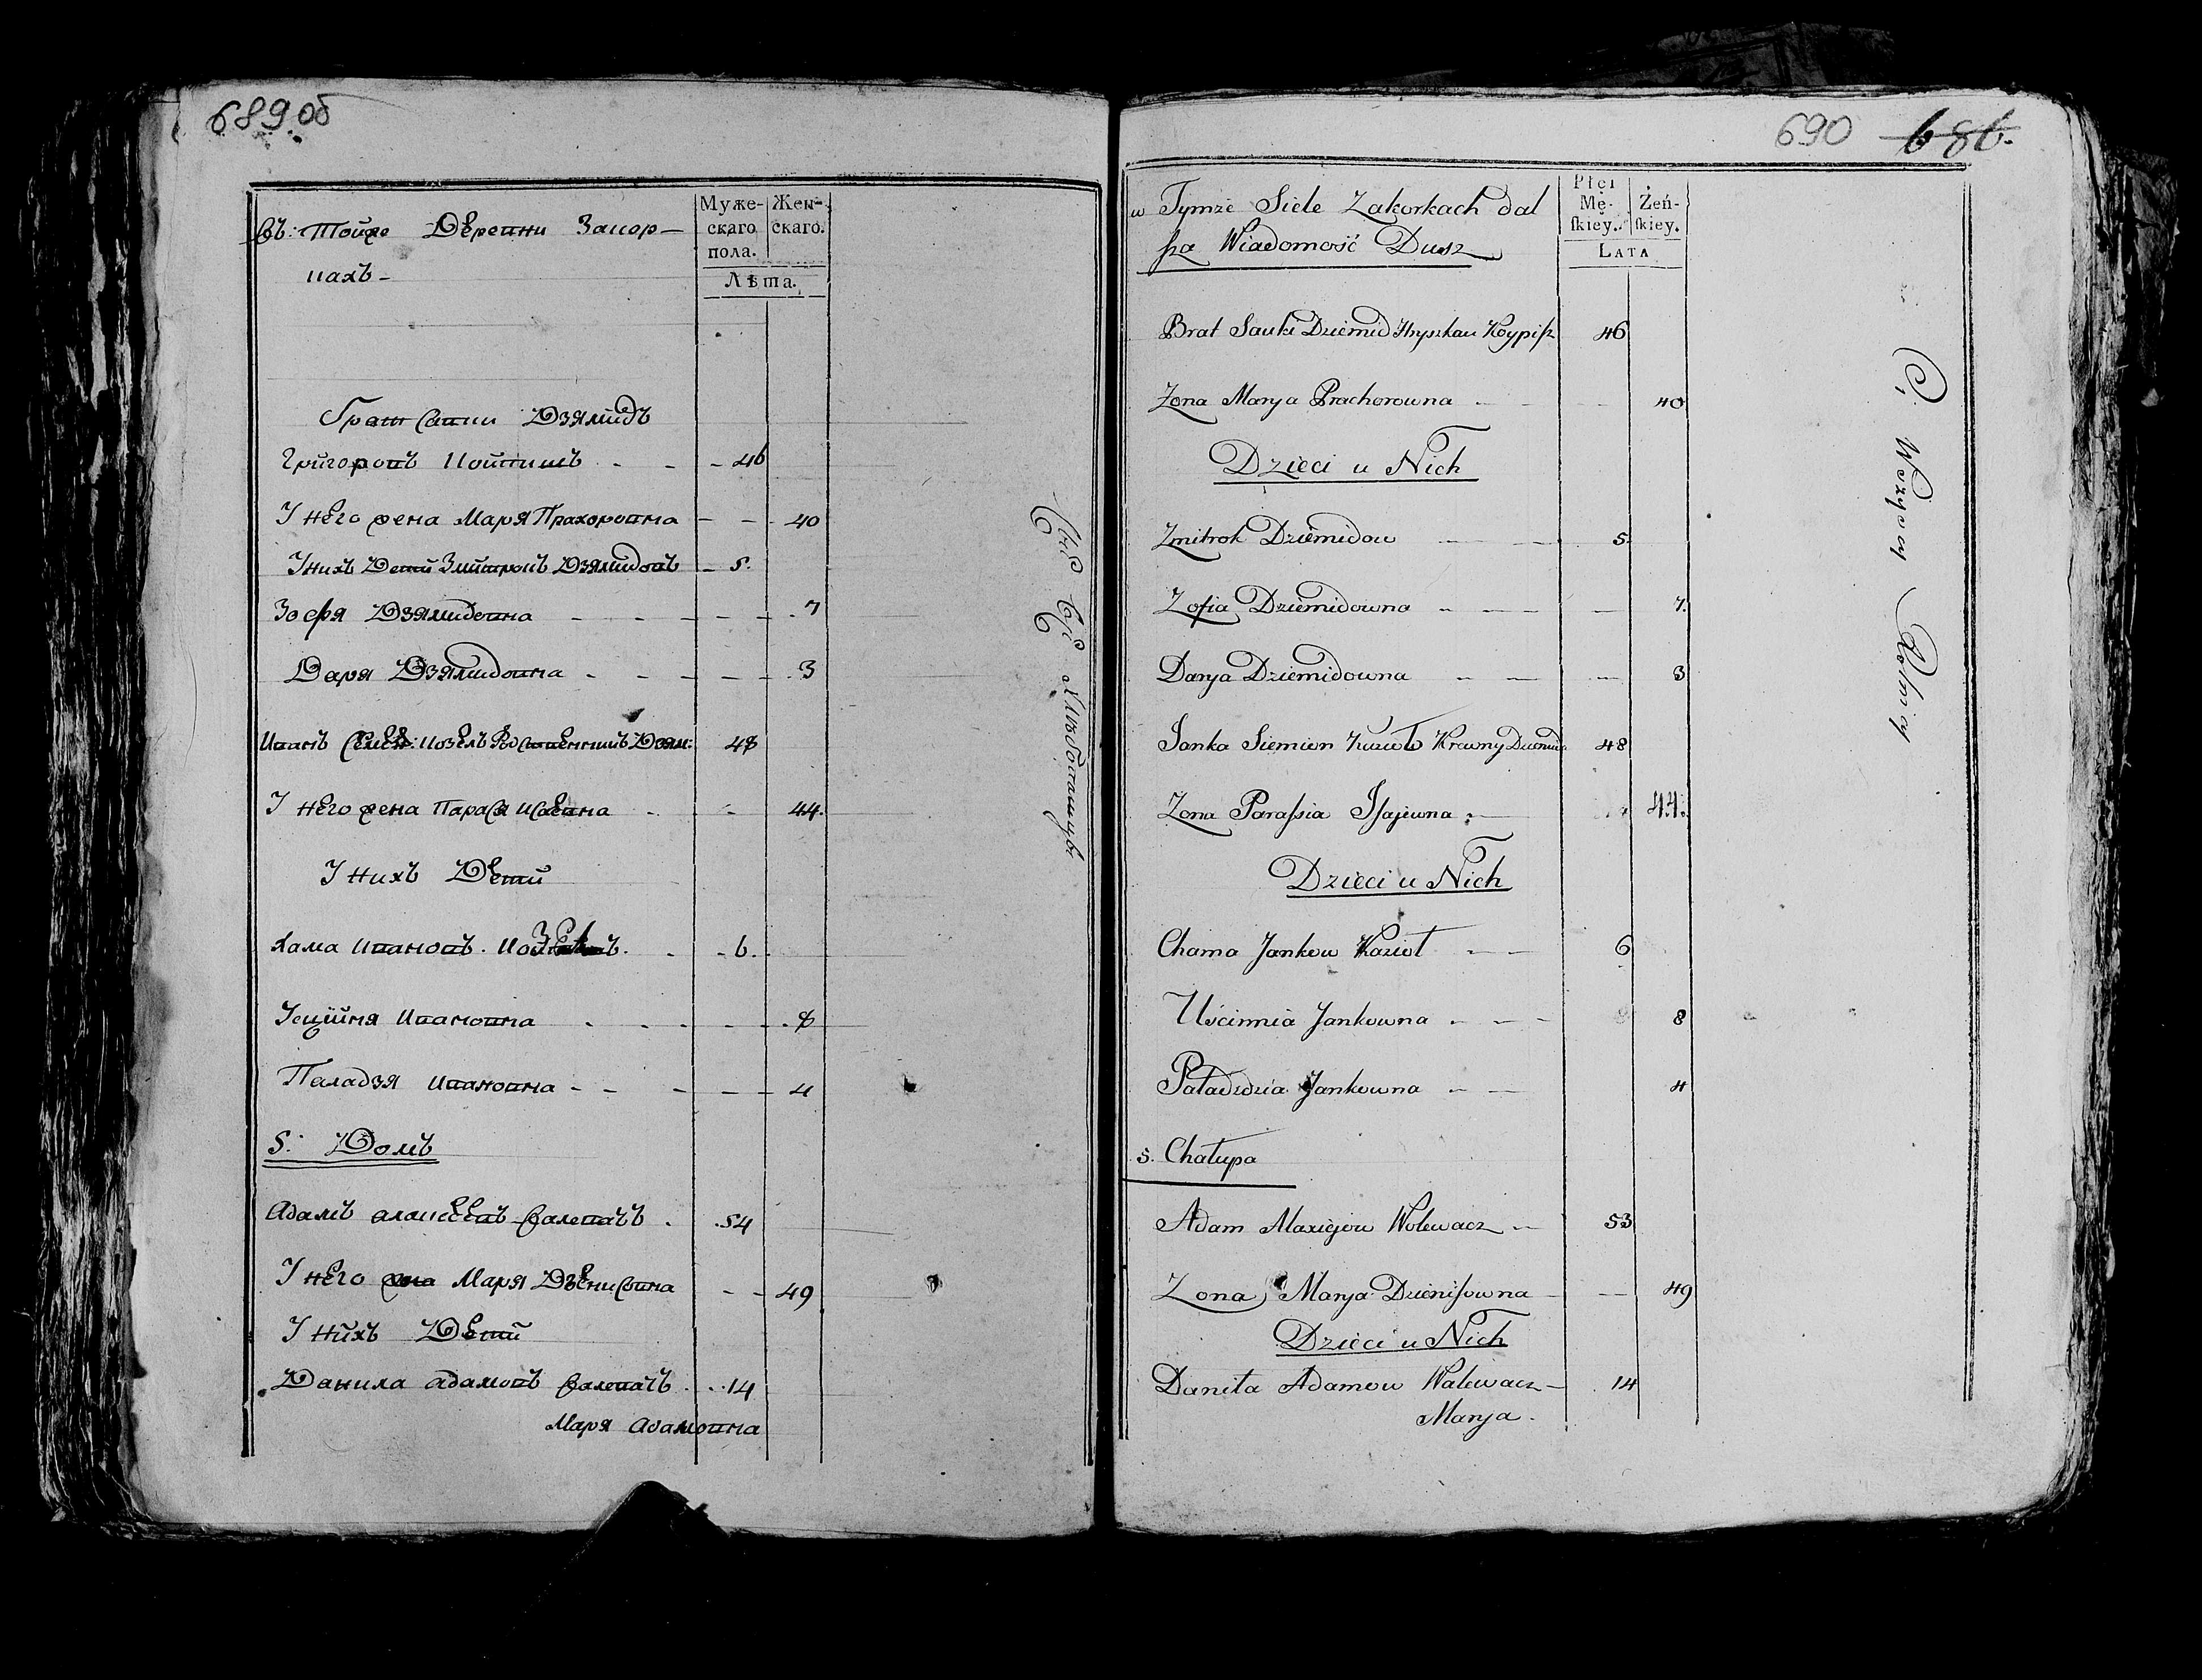 689 об
въ: Тойже Деревни Закор-
кахъ -
Муже-
скаго
пола.
Жен-
скаго.
Лѣта.
Братъ Савки Дзямидъ
Григоровъ - - - 46
У него жена Маря Прахоровна - - - 40
У нихъ Дети Змитрокъ Дзямидовъ - 5.
Зофя Дзямидовна - - - - - 7
Даря Дзямидовна - - - - - 3
Иванъ Козелъ Дзям: 48
У него жена Парася Исаевна - - 44.
У нихъ Дети
Хама Ивановъ. - - 6.
Усциня Ивановна - - - - - 8
Паладзя Ивановна - - - - - 4
5: Домъ
Адамъ Алексеевъ Валевачъ . 54
У него жена Маря Дзенисовна - - 49
У нихъ Дети
Данила Адамовъ Валевачъ . . 14
Маря Адамовна
690 686.
w Tymże Siele Zakorkach dal
sza Wiadomość Dusz
Płci
Mę-
skiey.
Żeń-
skiey.
Lata
Brat Sauki Dziemid Hryszkau 46
Zona Marya Prachorowna - - - 40
Dzieci u Nich
Zmitrok Dziemidow - - - 5
Zofia Dziemidowna - - - - 7.
Darya Dziemidowna - - - 3
Janka Siemion Krewny Dziemida 48
Zona Parassia Isajewna - 44.
Dzieci u Nich
Chama Jankow Kozioł - - 6
Uścinnia Jankowna - - - 8
Paładzdzia Jankowna - - 4
5. Chałupa
Adam Alaxiejow Wolewacz - 53
Zona Marya Dzienisowna - - 49
Dzieci u Nich
Daniła Adamow Walewacz - 14
Marya.